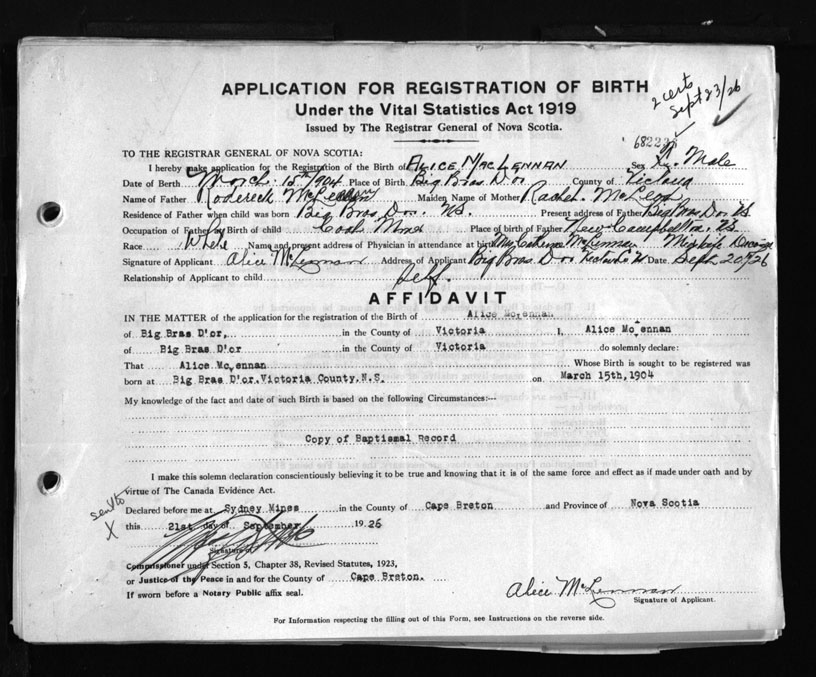 APPLICATION FOR REGISTRATION OF BIRTH
Under the Vital Statistics Act 1919
Issued by The Registrar General of Nova Scotia.
2 certs
Sept 23/26
TO THE REGISTRAR GENERAL OF NOVA SCOTIA:
I hereby make application for the Registration of the Birth of ALICE MACLENNAN Sex Male
Date of Birth March 15th/1904 Place of Birth Big Bras D'or County of Victoria
Name of Father Roderick Maiden Name of Mother Rachel McLeod
Residence of Father when child was born Big Bras Dor. NS. Present address of Father Big Bras Dor NS
Occupation of Father by Birth of child Coal Miner Place of birth of Father New Campbellton, NS.
Race White Name and present address of Physician in attendance at birth Mrs Catherine McLennan Midwife
Signature of Applicant Alice McLennan Address of Applicant Big Bras Dor Victoria Date Sept 20th/26
Relationship of Applicant to child Self.
AFFIDAVIT
IN THE MATTER of the application for the registration of the Birth of Alice McLennan
of Big Bras D'or, in the County of Victoria I, Alice McLennan
of Big Bras D'or in the County of Victoria do solemnly declare:
That Alice McLennan Whose Birth is sought to be registered was
born at Big Bras D'or.Victoria County,N.S. on March 15th,1904
My knowledge of the fact and date of such Birth is based on the following Circumstances:--
Copy of Baptismal Record
I make this solemn declaration conscientiously believing it to be true and knowing that it is of the same force and effect as if made under oath and by
virtue of The Canada Evidence Act.
sent to
X
Declared before me at Sydney Mines in the County of Cape Breton and Province of Nova Scotia
this 21st day of September 1926
Signature of
Commissioner under Section 5, Chapter 38, Revised Statutes, 1923,
or Justice of the Peace in and for the County of Cape Breton.
If sworn before a Notary Public affix seal.
Alice McLennan
Signature of Applicant.
For Information respecting the filling out of this Form, see Instructions on the reverse side.